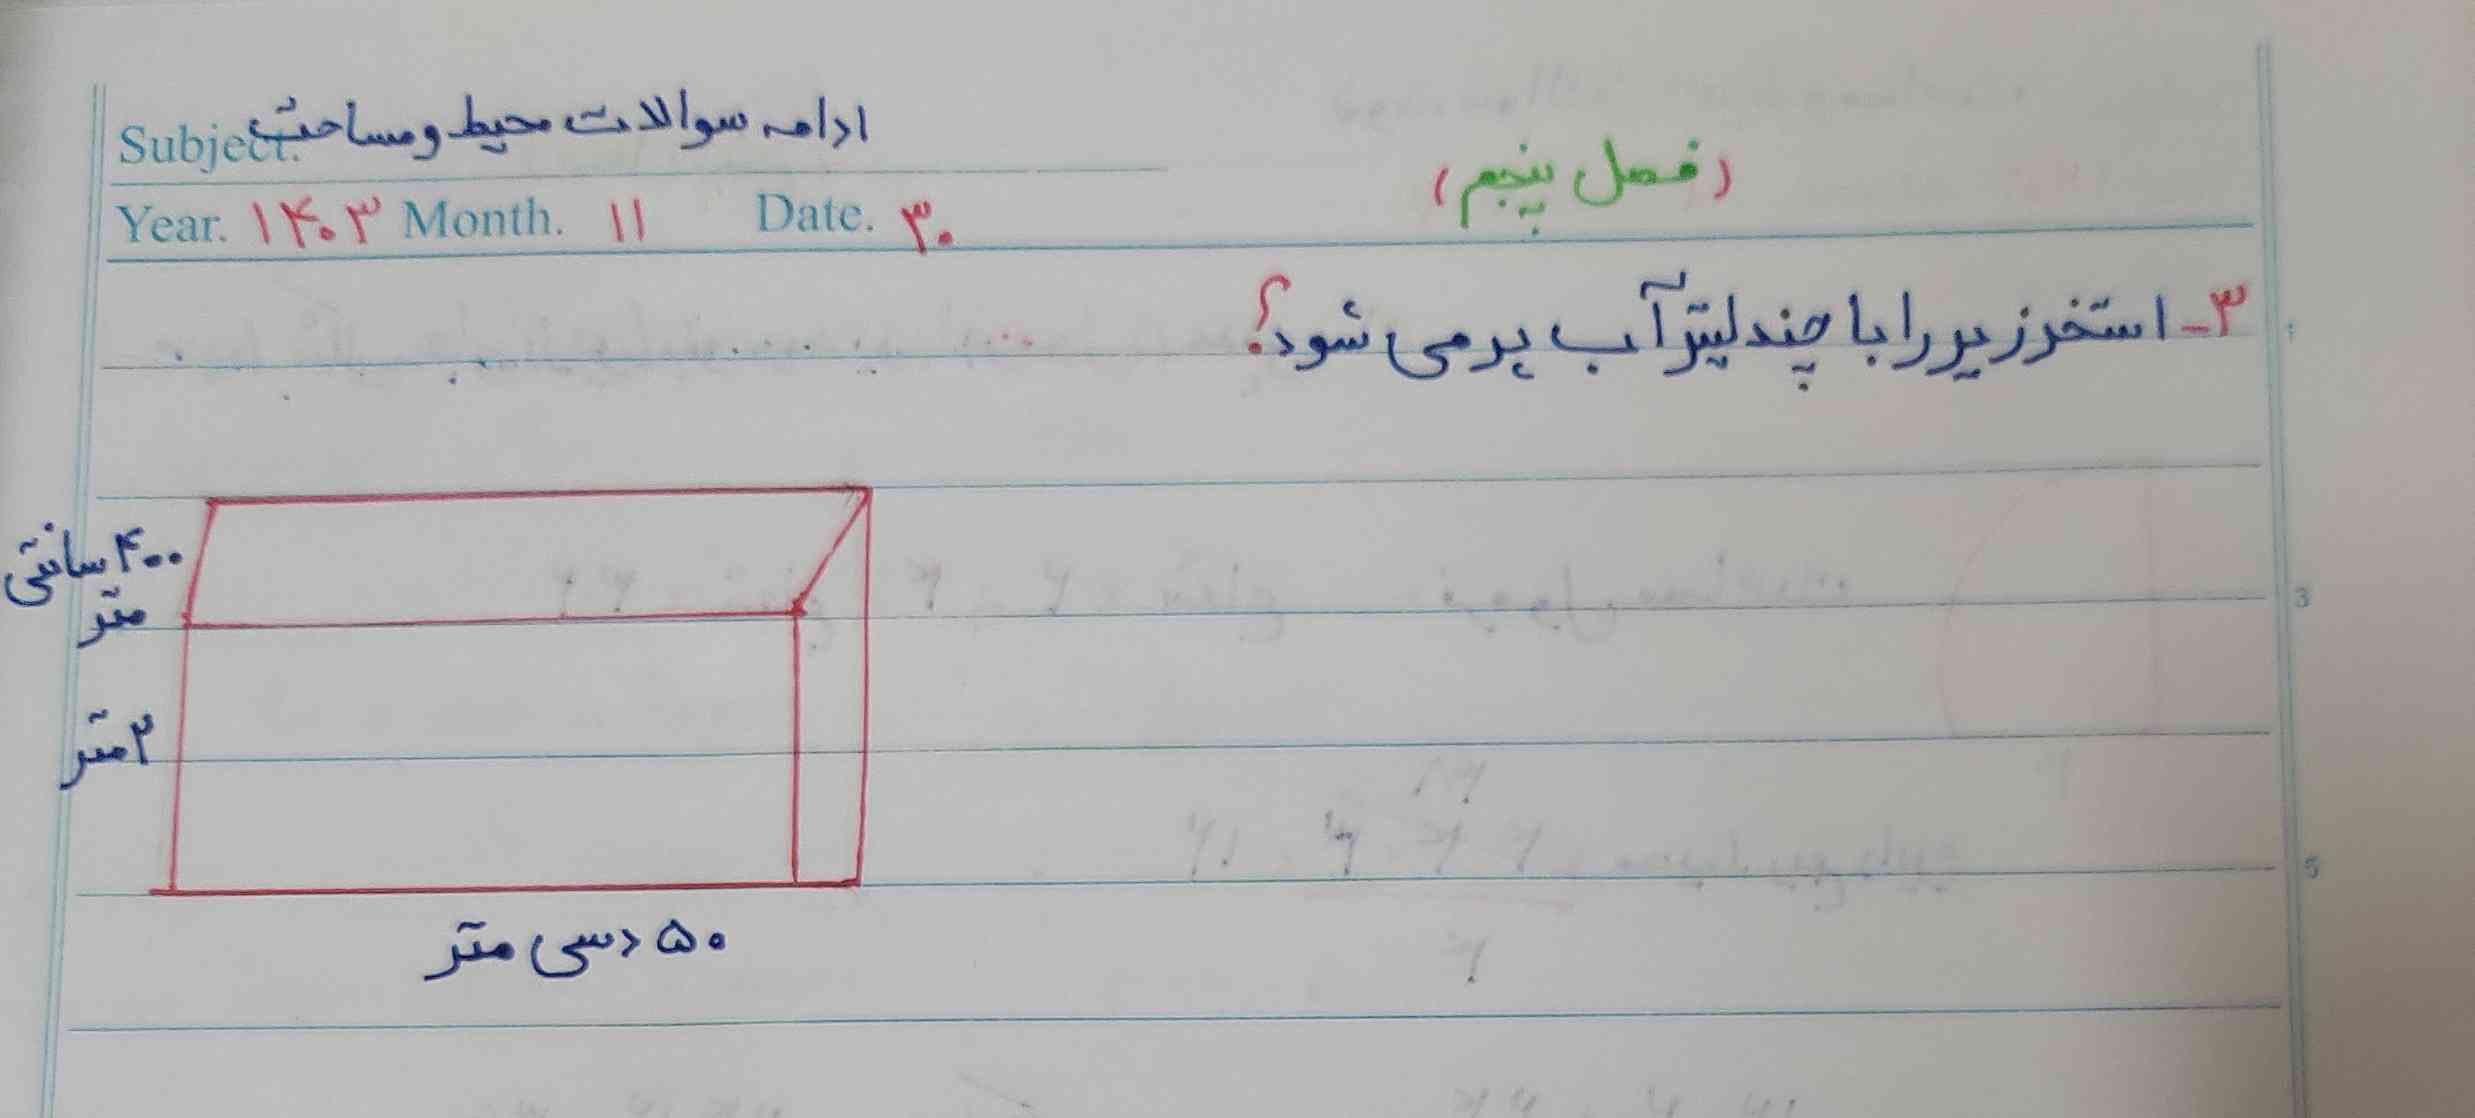 ادامه سوالات محیط و مساحت
Subject.
(فصل پنجم)
Year. ۱۴۰۳ Month. ۱۱ Date. ۳۰
۳- استخر زیر را با چند لیتر آب پر می شود؟
۴۰۰ سانتی
متر
3
۲ متر
5
۵۰ دسی متر